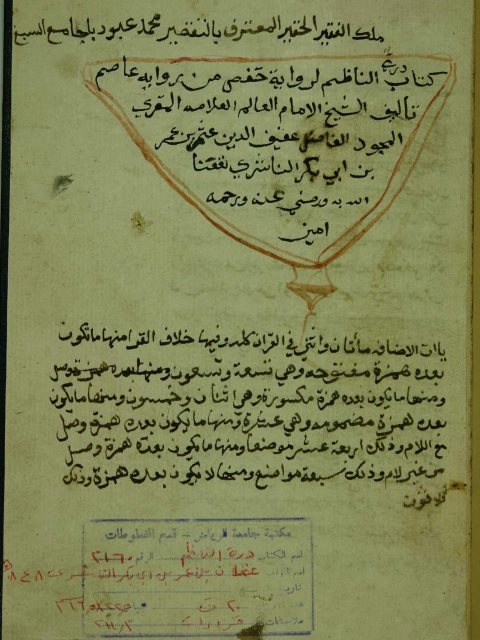 ملك الفقير الحقير المعترف بالتقصير محمد عبود بلجامع
كتاب درة الناظم لرواية حفص من رواية عاصم
تأليف الشيخ الامام العالم العلامه المقري
المجود الفاضل عفيف الدين عثمن بن عمر
بن ابي بكر الناشري نفعنا
الله به ورضي عنه ورحمه
امين
ياات الاضافه مأتان واثنتي في القرآن كله وفيها خلاف القرا منها ماتكون
بعده همزة مفتوحة وهي تسعة وتسعون
ومنها مايكون بعده همزة مكسورة وهي اثنان وخمسون ومنها مايكون
بعده همزة مضمومه وهي عشرة ومنها مايكون بعده همزة وصل
مع اللام وذلك اربعة عشر موضعا ومنها مايكون بعده همزة وصل
من غير لام وذلك سبعة مواضع ومنها لا يكون بعده همزة وذلك
مكتبة جامعة الرياض - قسم المخطوطات
اسم الكتاب درة الناظم الرقم ٢١٦٠
اسم المؤلف عثمان بن عمر بن ابي بكر
تاريخ